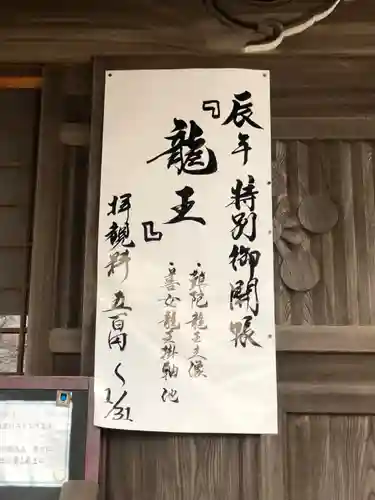 辰年特別御開帳
『龍王』
・難陀龍王夫像
・善女龍王掛軸他
拝観料五百円
〜1/31